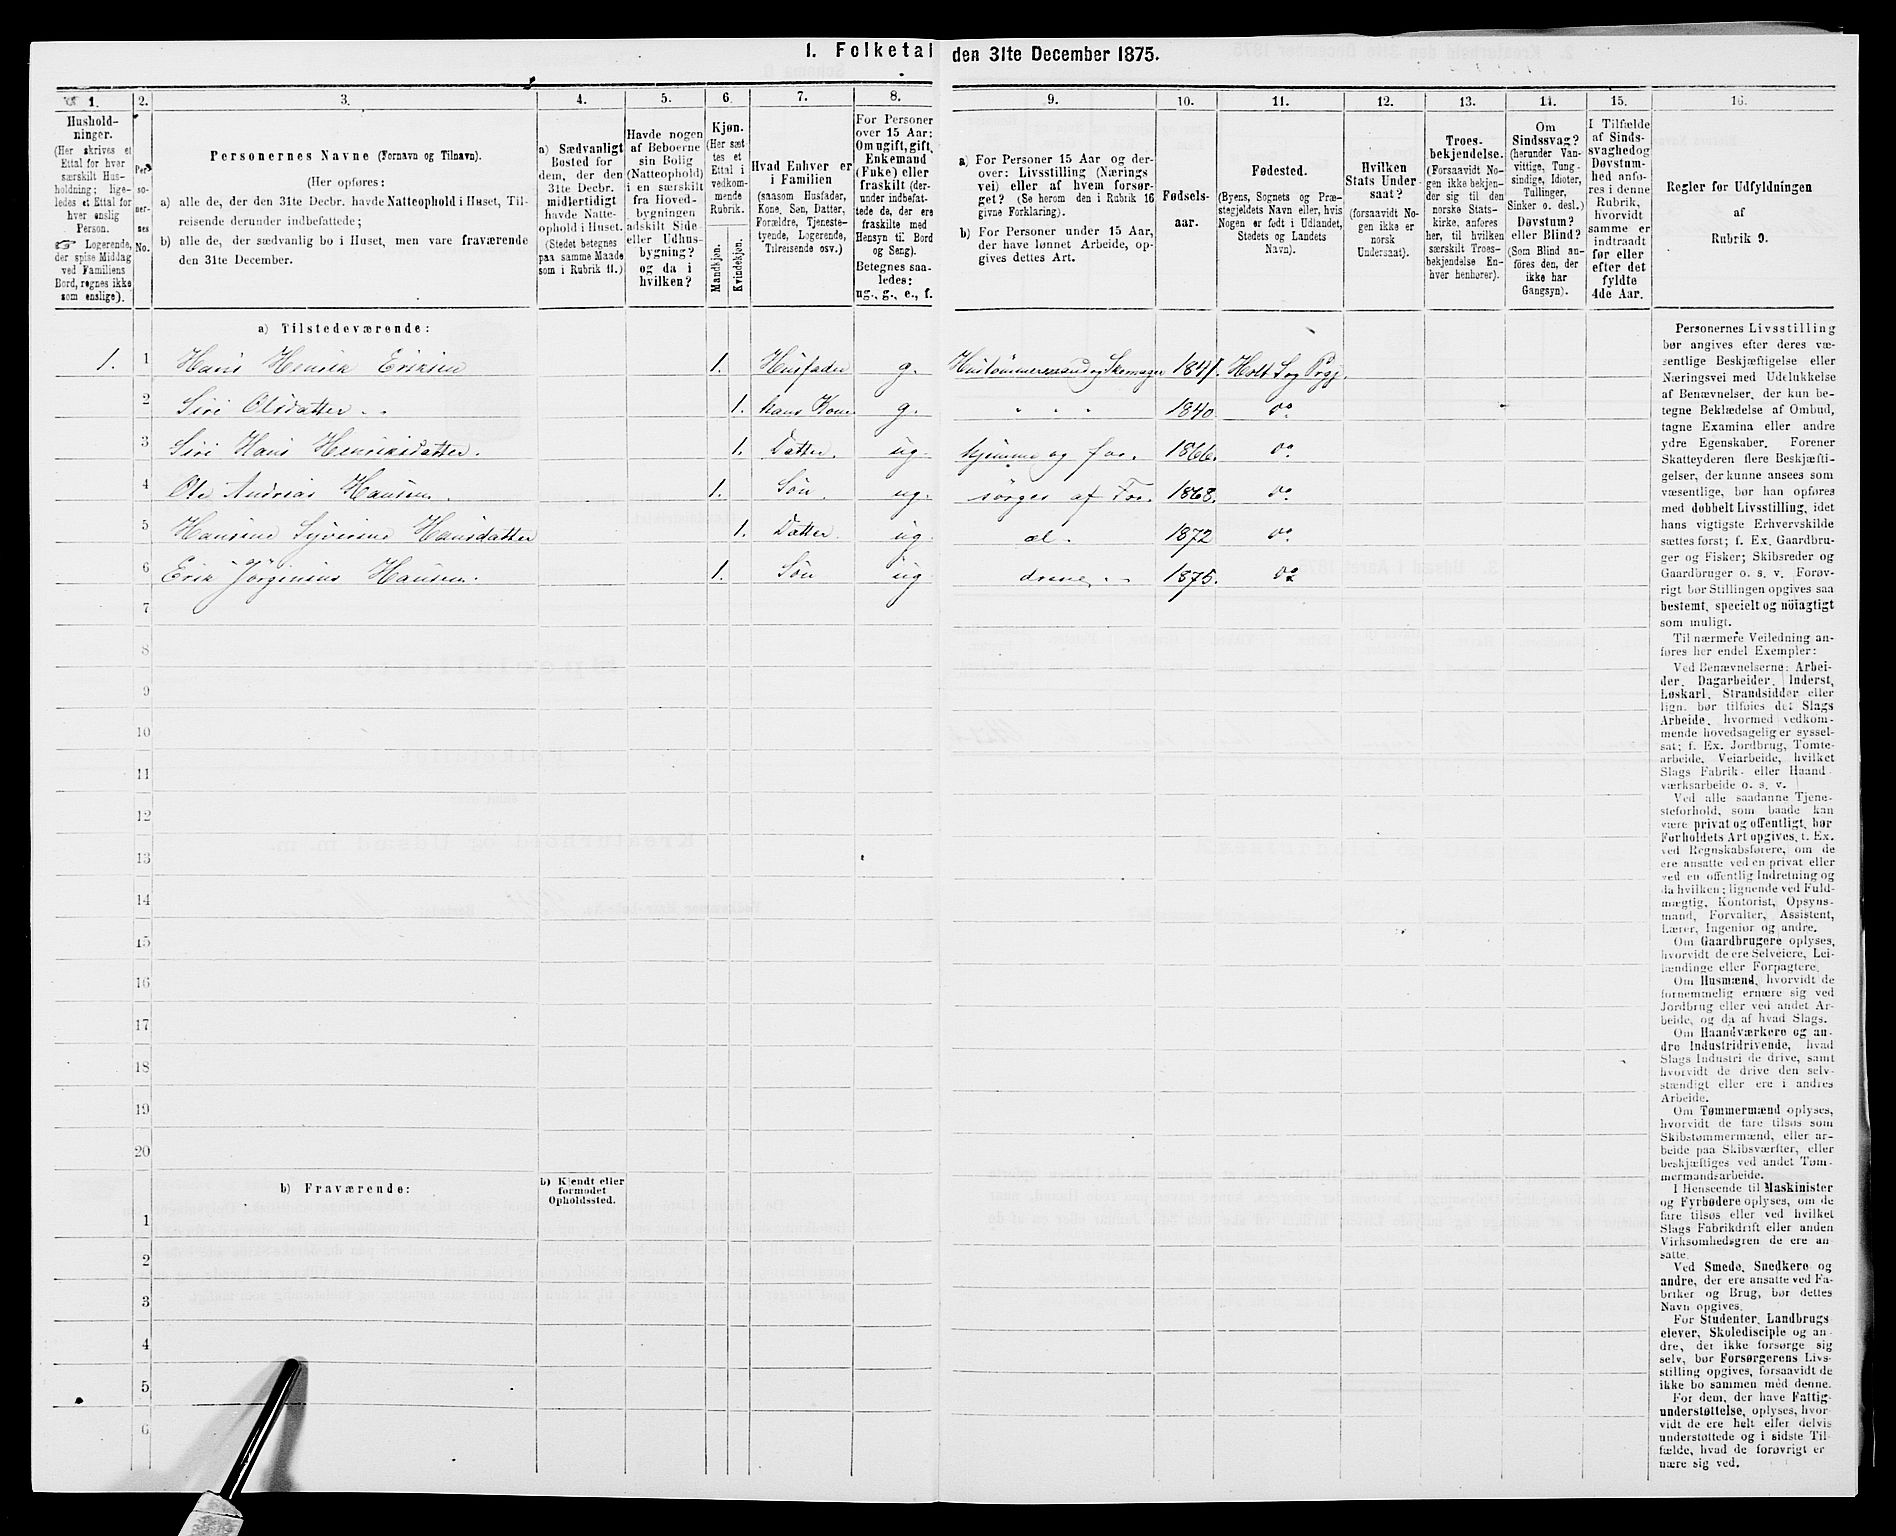 1. Folketal den 31te December 1875.
1. 2. 3. 4. 5. 6. 7. 8. 9. 10. 11. 12. 13. 14. 15. 16.
Hushold-
ninger.
(Her skrives et
Ettal for hver
særskilt Hus-
holdning; lige-
ledes et Ettal for
hver enslig
Person.
☞ Logerende,
der spise Middag
ved Familiens
Bord, regnes ikke
som enslige).
Per-
so-
ner-
nes
No.
Personernes Navne (Fornavn og Tilnavn).
(Her opføres:
a) alle de, der den 31te Decbr. havde Natteophold i Huset, Til-
reisende derunder indbefattede;
b) alle de, der sædvanlig bo i Huset, men vare fraværende
den 31te December.
a) Sædvanligt
Bosted for
dem, der den
31te Decbr.
midlertidigt
havde Natte-
ophold i Huset.
(Stedet betegnes
paa samme Maade
som i Rubrik 11.)
Havde nogen
af Beboerne
sin Bolig
(Natteophold)
i en særskilt
fra Hoved-
bygningen
adskilt Side-
eller Udhus-
bygning?
og da i
hvilken?
Kjøn.
(Her sæt-
tes et
Ettal i
vedkom-
mende
Rubrik.
Mandkjøn.
Kvindekjøn.
Hvad Enhver er
i Familien
(saasom Husfader,
Kone, Søn, Datter,
Forældre, Tjeneste-
tyende, Logerende,
Tilreisende osv.)
For Personer
over 15 Aar:
Om ugift, gift,
Enkemand
(Enke) eller
fraskilt (der-
under indbefat-
tede de, der ere
fraskilte med
Hensyn til Bord
og Seng).
Betegnes saa-
ledes:
ug., g., e., f.
a) For Personer 15 Aar og der-
over: Livsstilling (Nærings-
vei) eller af hvem forsør-
get? (Se herom den i Rubrik 16
givne Forklaring).
b) For Personer under 15 Aar,
der have lønnet Arbeide, op-
gives dettes Art.
Fødsels-
aar.
Fødested.
(Byens, Sognets og Præ-
stegjeldets Navn eller, hvis
Nogen er født i Udlandet,
Stedets og Landets
Navn).
Hvilken
Stats Under-
saat?
(forsaavidt No-
gen ikke er
norsk
Undersaat).
Troes-
bekjendelse.
(Forsaavidt No-
gen ikke bekjen-
der sig til den
norske Stats-
kirke, anføres
her, til hvilken
særskilt Troes-
bekjendelse En-
hver henhører).
Om
Sindssvag?
(herunder Van-
vittige, Tung-
sindige, Idioter,
Tullinger,
Sinker o. desl.)
Døvstum?
eller Blind?
(Som Blind an-
føres den, der
ikke har
Gangsyn).
I Tilfælde
af Sinds-
svaghed og
Døvstum-
hed anfø-
res i denne
Rubrik,
hvorvidt
samme er
indtraadt
før eller
efter det
fyldte
4de Aar.
Regler for Udfyldningen
af
Rubrik 9.
a) Tilstedeværende:
1. 1 Hans Henrik Eriksen 1. Husfader g. Hustømmermand og Skomager 1841. Holt Sog Prgj.
2 Siri Olsdatter 1. hans Kone g. " " " 1840. do
3 Siri Hans Henriksdatter. 1. Datter. ug. hjemme og for- 1866. do
4 Ole Andreas Hansen. 1. Søn. ug. sørges af For- 1868. do
5 Hansine Syverine Hansdatter 1. Datter. ug. æl- 1872 do
6 Erik Jørginius Hansen. 1. Søn ug drene 1875. do
7
8
9
10
11
12
13
14
15
16
17
18
19
20
b) Fraværende:
b) Kjendt eller
formodet
Opholdssted.
1
2
3
4
5
6
Personernes Livsstilling
bør angives efter deres væ-
sentlige Beskjæftigelse eller
Næringsvei med Udelukkelse
af Benævnelser, der kun be-
tegne Beklædelse af Ombud,
tagne Examina eller andre
ydre Egenskaber. Forener
Skatteyderen flere Beskjæfti-
gelser, der kunne ansees som
væsentlige, bør han opføres
med dobbelt Livsstilling, idet
hans vigtigste Erhvervskilde
sættes først; f. Ex. Gaardbru-
ger og Fisker; Skibsreder og
Gaardbruger o. s. v. Forøv-
rigt bør Stillingen opgives saa
bestemt, specielt og nöiagtigt
som muligt.
Til nærmere Veiledning an-
føres her endel Exempler:
Ved Benævnelserne: Arbei-
der, Dagarbeider, Inderst,
Løskarl, Strandsidder eller
lign. bør tilføies det Slags
Arbeide, hvormed vedkom-
mende hovedsagelig er syssel-
sat; f. Ex. Jordbrug, Tomte-
arbeide, Veiarbeide, hvilket
Slags Fabrik- eller Haand
værksarbeide o. s. v.
Ved alle saadanne Tjene-
steforhold, som baade kan
være privat og offentligt, bør
Forholdets Art opgives, f. Ex.
ved Regnskabsførere, om de
ere ansatte ved en privat eller
ved en offentlig Indretning og
da hvilken; lignende ved Fuld-
mægtig, Kontorist, Opsyns-
mand, Forvalter, Assistent,
Lærer, Ingeniør og andre.
Om Gaardbrugere oplyses,
hvorvidt de ere Selveiere, Lei-
lændinge eller Forpagtere.
Om Husmænd, hvorvidt de
fornemmelig ernære sig ved
Jordbrug eller ved andet Ar-
beide, og da af hvad Slags.
Om Haandværkere og an-
dre Industridrivende, hvad
Slags Industri de drive, samt
hvorvidt de drive den selv-
stændigt eller ere i andres
Arbeide.
Om Tømmermænd oplyses,
hvorvidt de fare tilsøs som
Skibstømmermænd, eller ar-
beide paa Skibsværfter, eller
beskjæftiges ved andet Tøm-
mermandsarbeide.
I Henseende til Maskinister
og Fyrbødere oplyses, om de
fare tilsøs eller ved hvilket
Slags Fabrikdrift eller anden
Virksomhedsgren de ere an-
satte.
Ved Smede, Snedkere og
andre, der ere ansatte ved Fa-
briker og Brug, bør dettes
Navn opgives.
For Studenter, Landbrugs
elever, Skoledisciple og an-
dre, det ikke forsørge sig
selv, bør Forsørgerens Livs-
stilling opgives, forsaavidt de
ikke bo sammen med denne.
For dem, der have Fattig-
understøttelse, oplyses, hvor-
vidt de ere helt eller delvis
understøttede og i sidste Til-
fælde, hvad de forøvrigt er
nære sig ved.